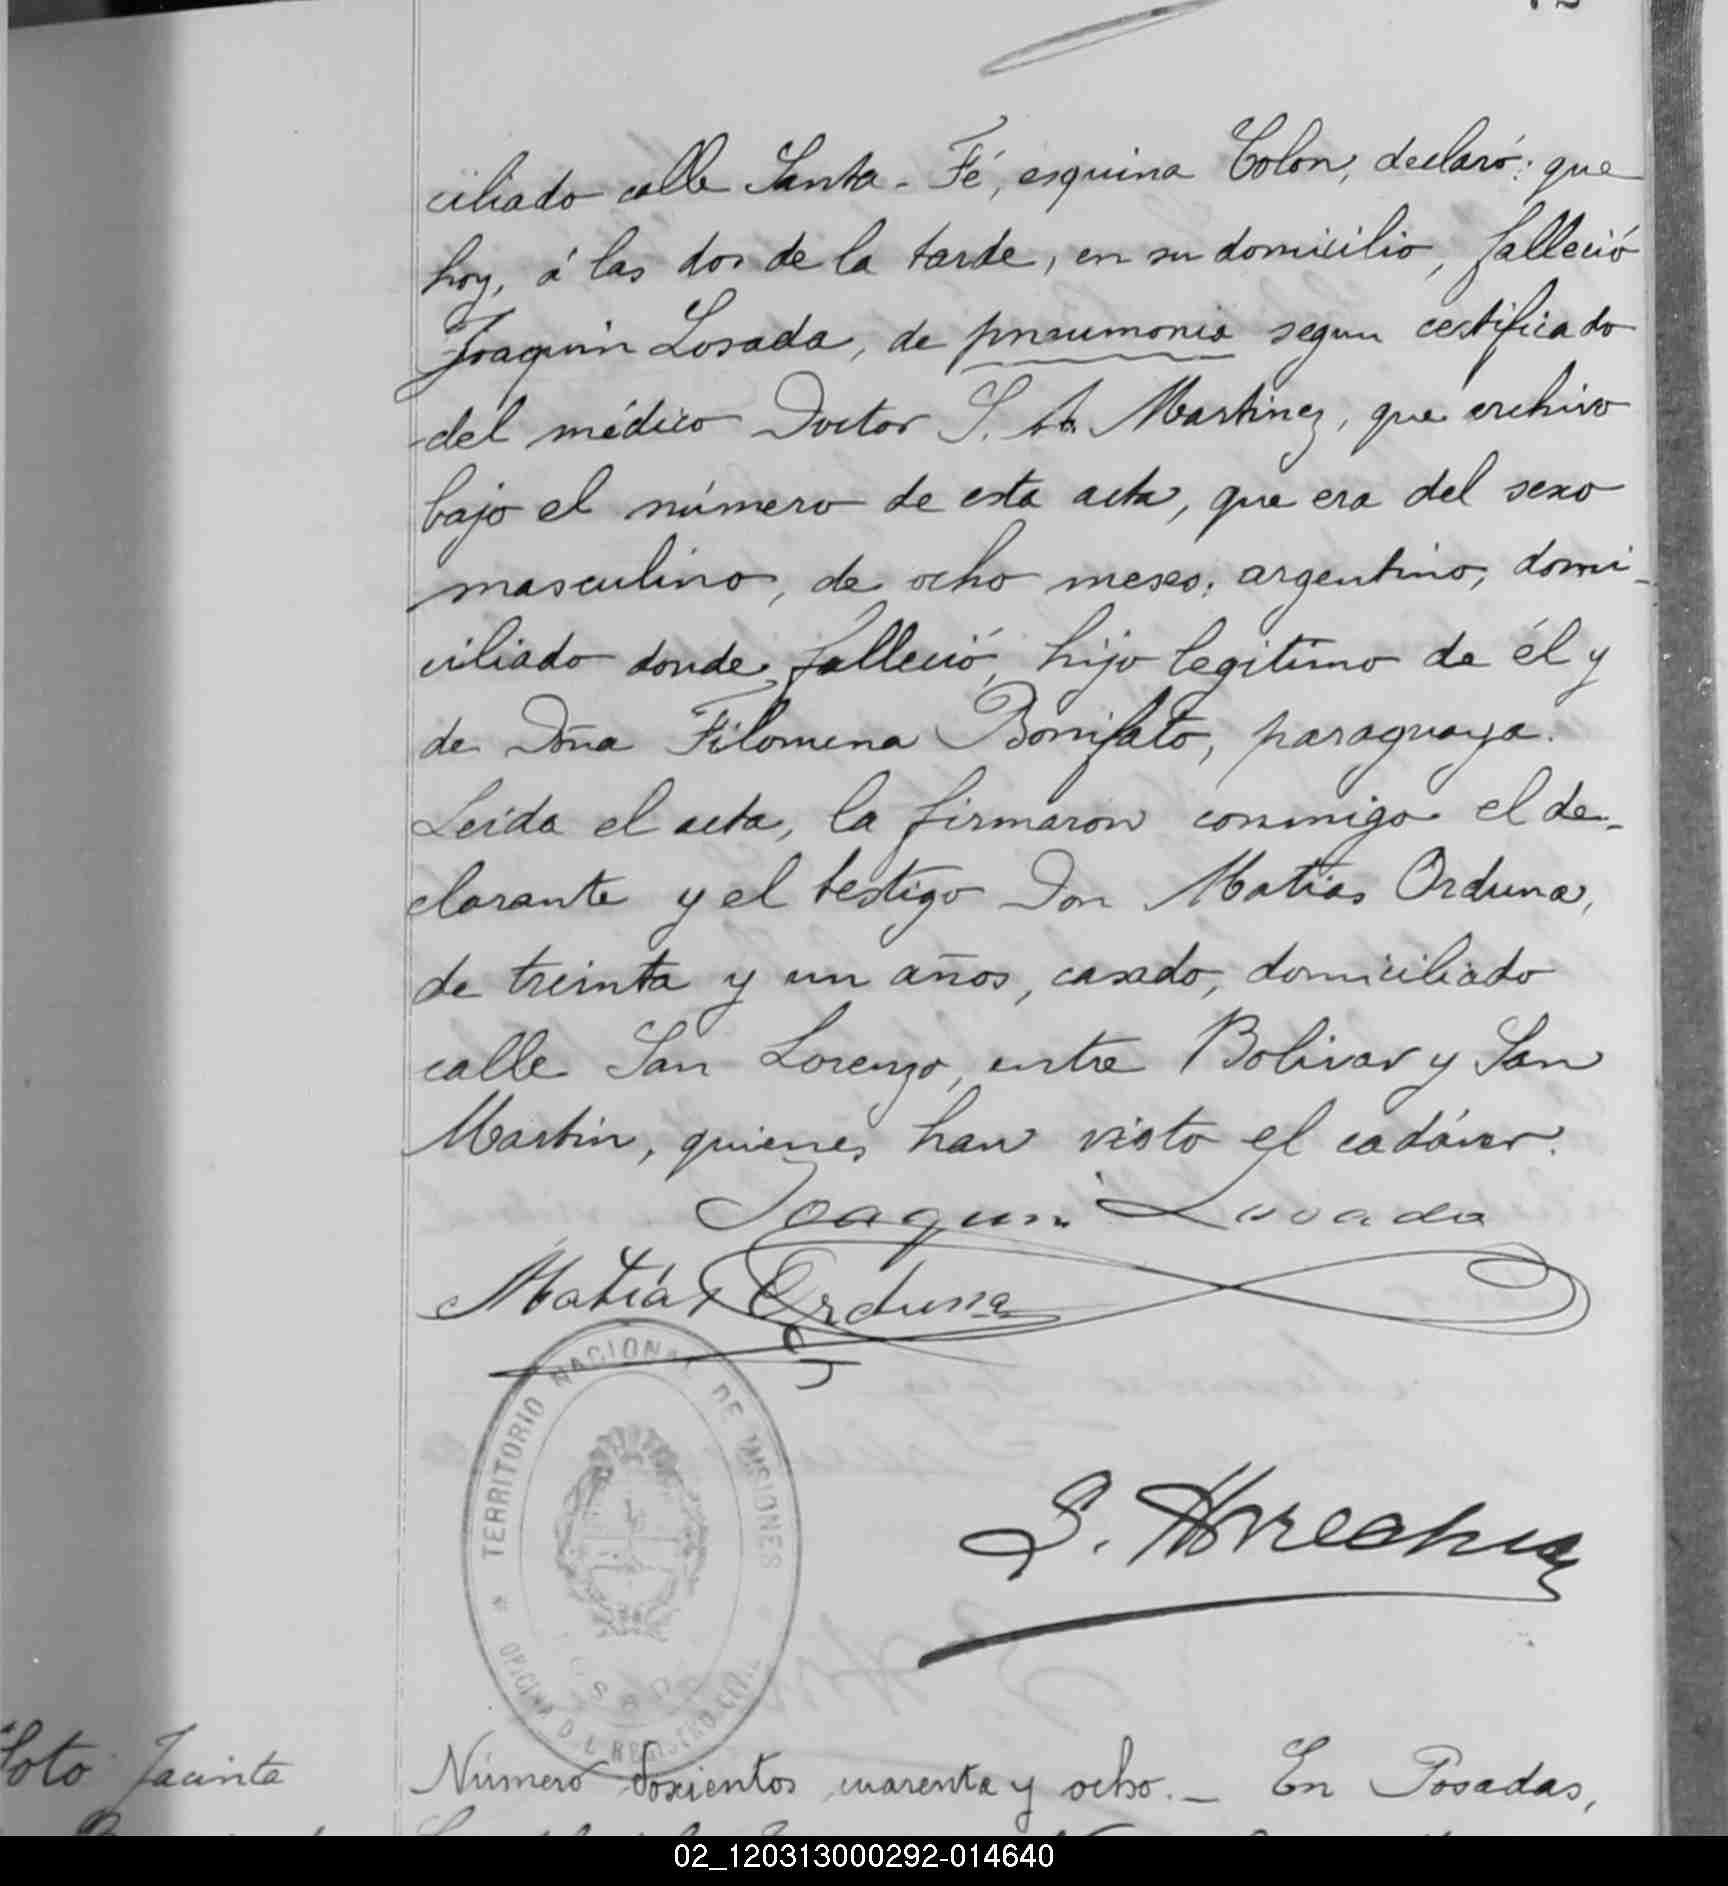 ciliado calle Santa-Fé, esquina Colon, declaró: que
hoy, á las dos de la tarde, en su domicilio, falleció
Joaquin Losada, de pneumonia segun certificado
del médico Doctor S. A. Martinez, que archivo
bajo el número de esta acta, que era del sexo
masculino, de ocho meses, argentino, domi-
ciliado donde falleció, hijo legitimo de él y
de Doña Filomena Bonifato, paraguaya.
Leida el acta, la firmaron conmigo el de-
clarante y el testigo Don Matias Orduna,
de treinta y un años, casado, domiciliado
calle San Lorenzo, entre Bolivar y San
Martin, quienes han visto el cadáver.
Joaquin Losada
Matías Orduna
TERRITORIO NACIONAL DE MISIONES
OFICINA DEL REGISTRO CIVIL
S.
Soto Jacinta
Número doscientos cuarenta y ocho._ En Posadas,
02_120313000292-014640